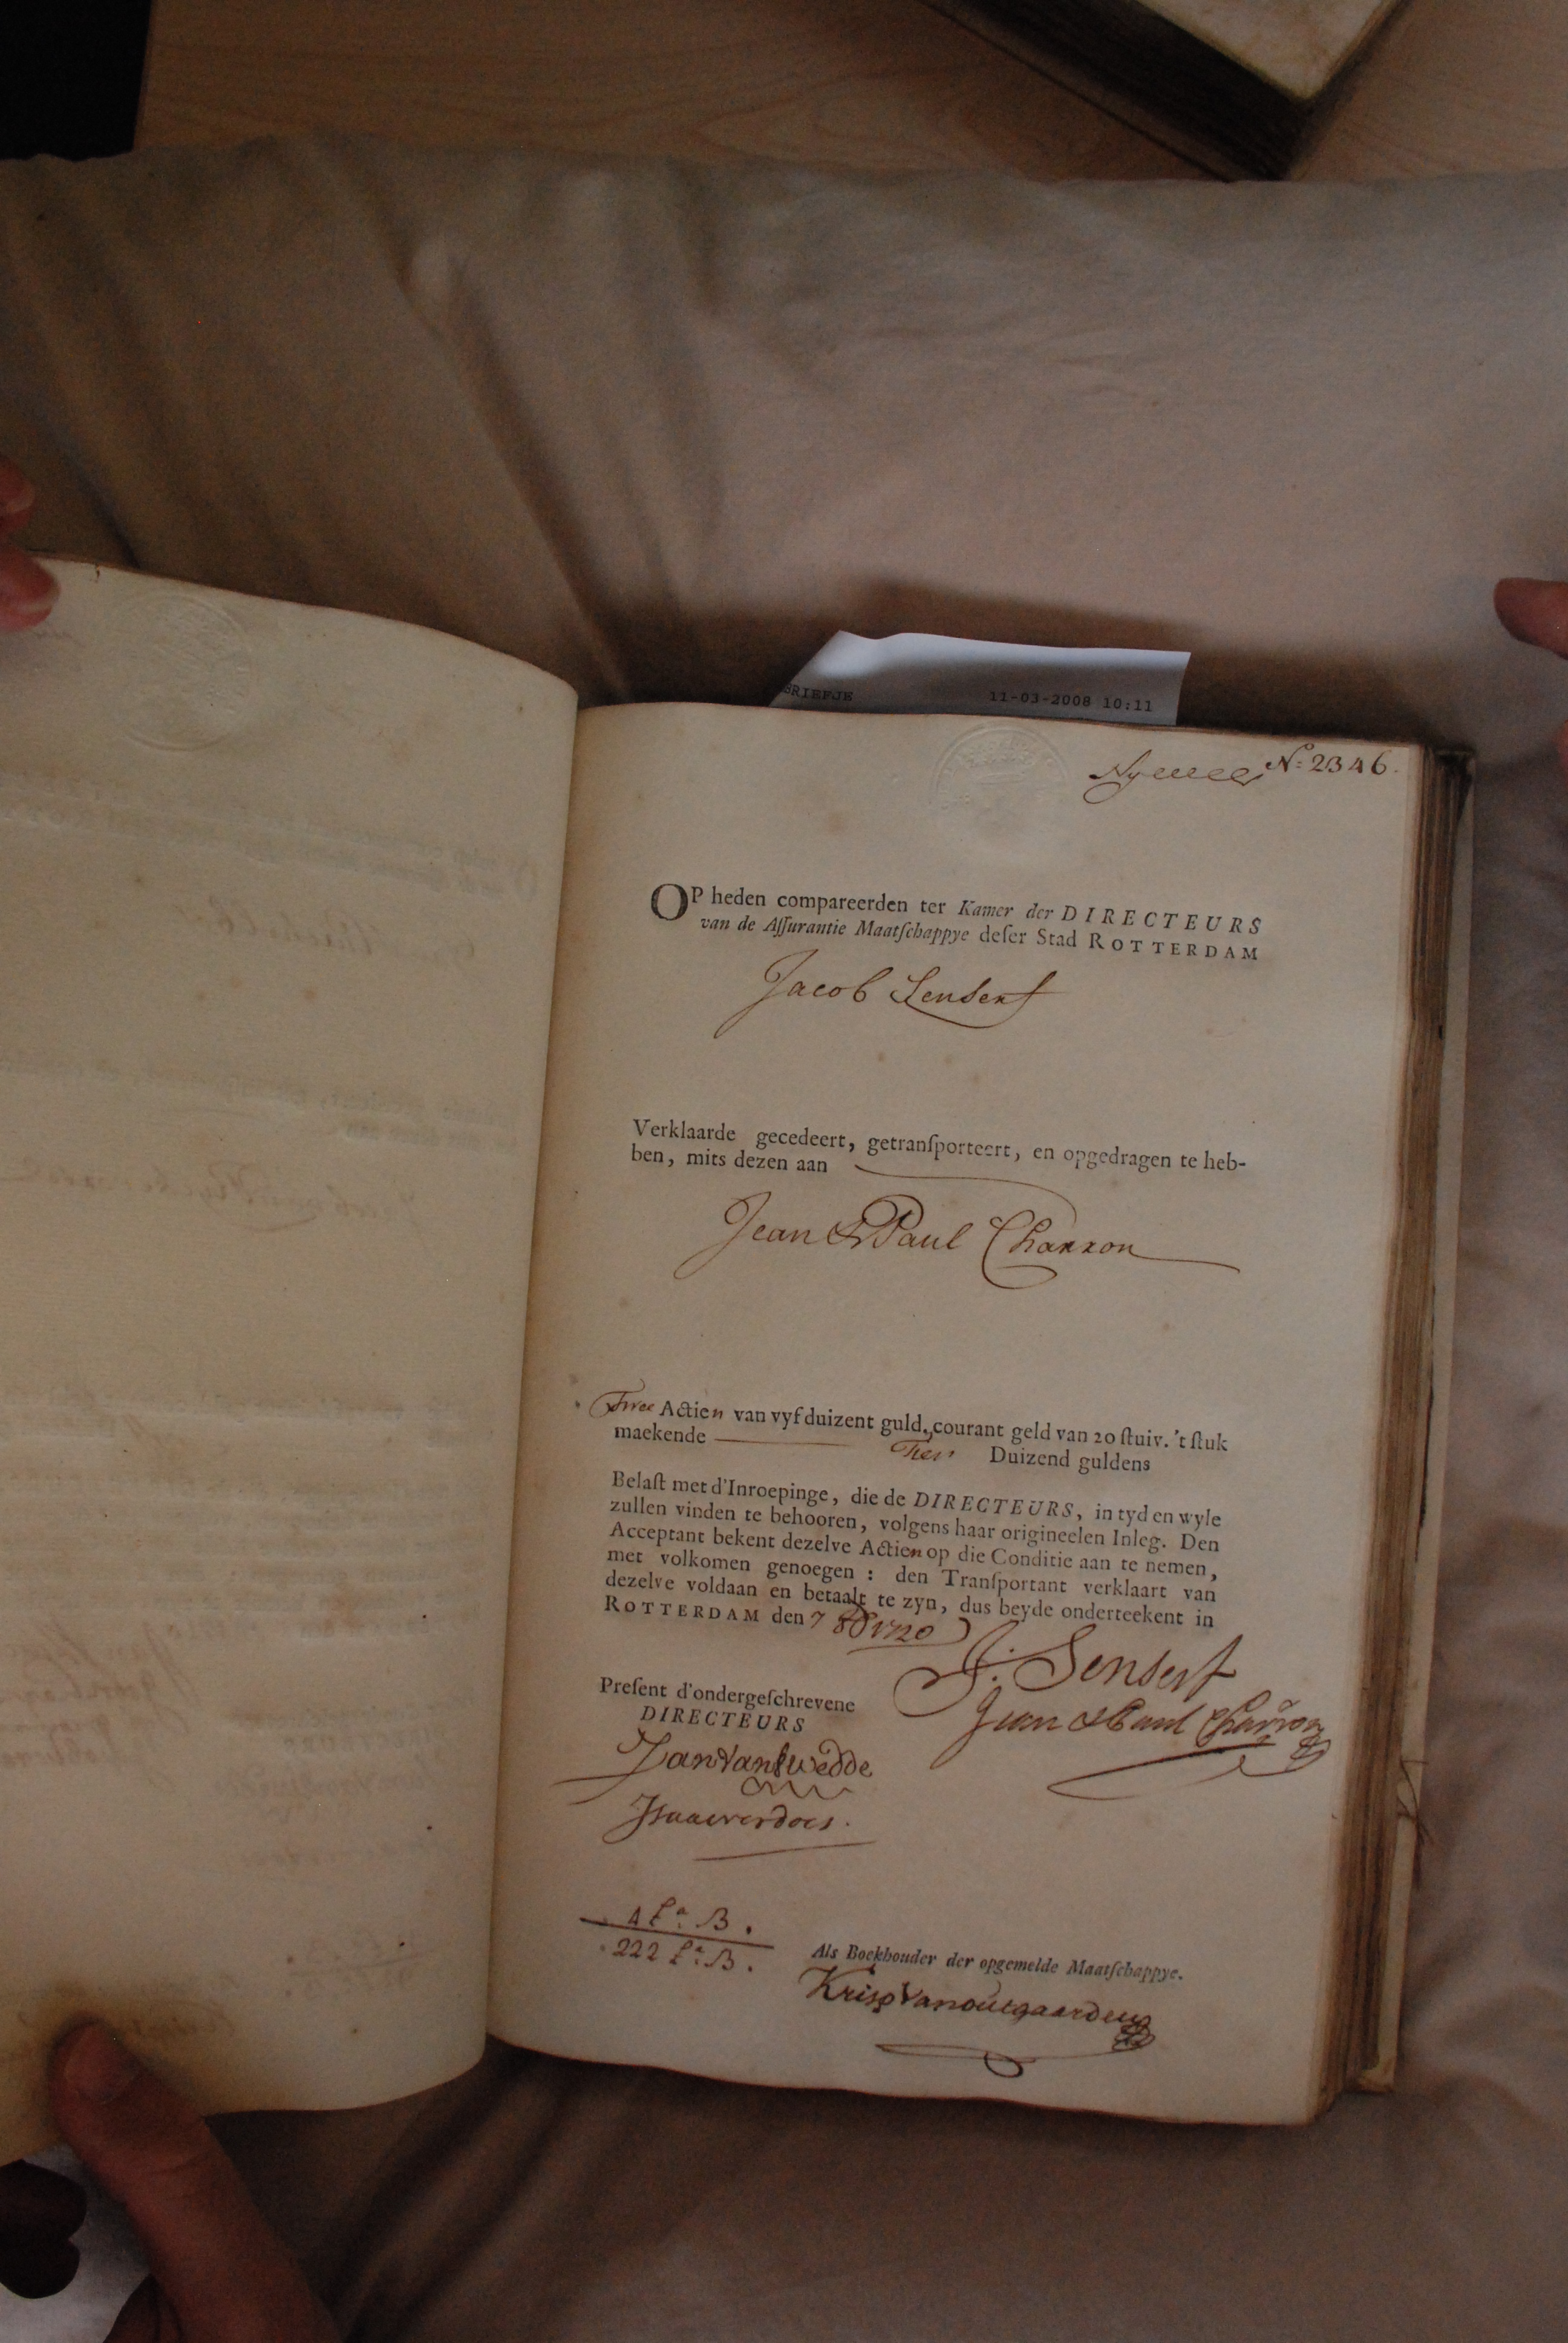 BRIEFJE 11-03-2008 10:11
No: 2346.
OP heden compareerden ter Kamer der DIRECTEURS
van de Aſſurantie Maatſchappye deſer Stad ROTTERDAM
Jacob Senserf
Verklaarde gecedeert, getranſporteert, en opgedragen te heb-
ben, mits dezen aan
Jean & Paul Charron
Twee Actien van vyf duizent guld. courant geld van 20 ſtuiv. 't ſtuk
maekende Thien Duizend guldens
Belaſt met d'Inroepinge, die de DIRECTEURS, in tyd en wyle
zullen vinden te behooren, volgens haar origineelen Inleg. Den
Acceptant bekent dezelve Actien op die Conditie aan te nemen,
met volkomen genoegen : den Tranſportant verklaart van
dezelve voldaan en betaalt te zyn, dus beyde onderteekent in
ROTTERDAM den 7 8b 1720
J. Senserf
Jean & Paul Charron
Preſent d'ondergeſchrevene
DIRECTEURS
Jan van Swedde
Isaac verdoes.
4 La: B.
222 La: B.
Als Boekhouder der opgemelde Maatſchappye.
Krisp van outgaarden